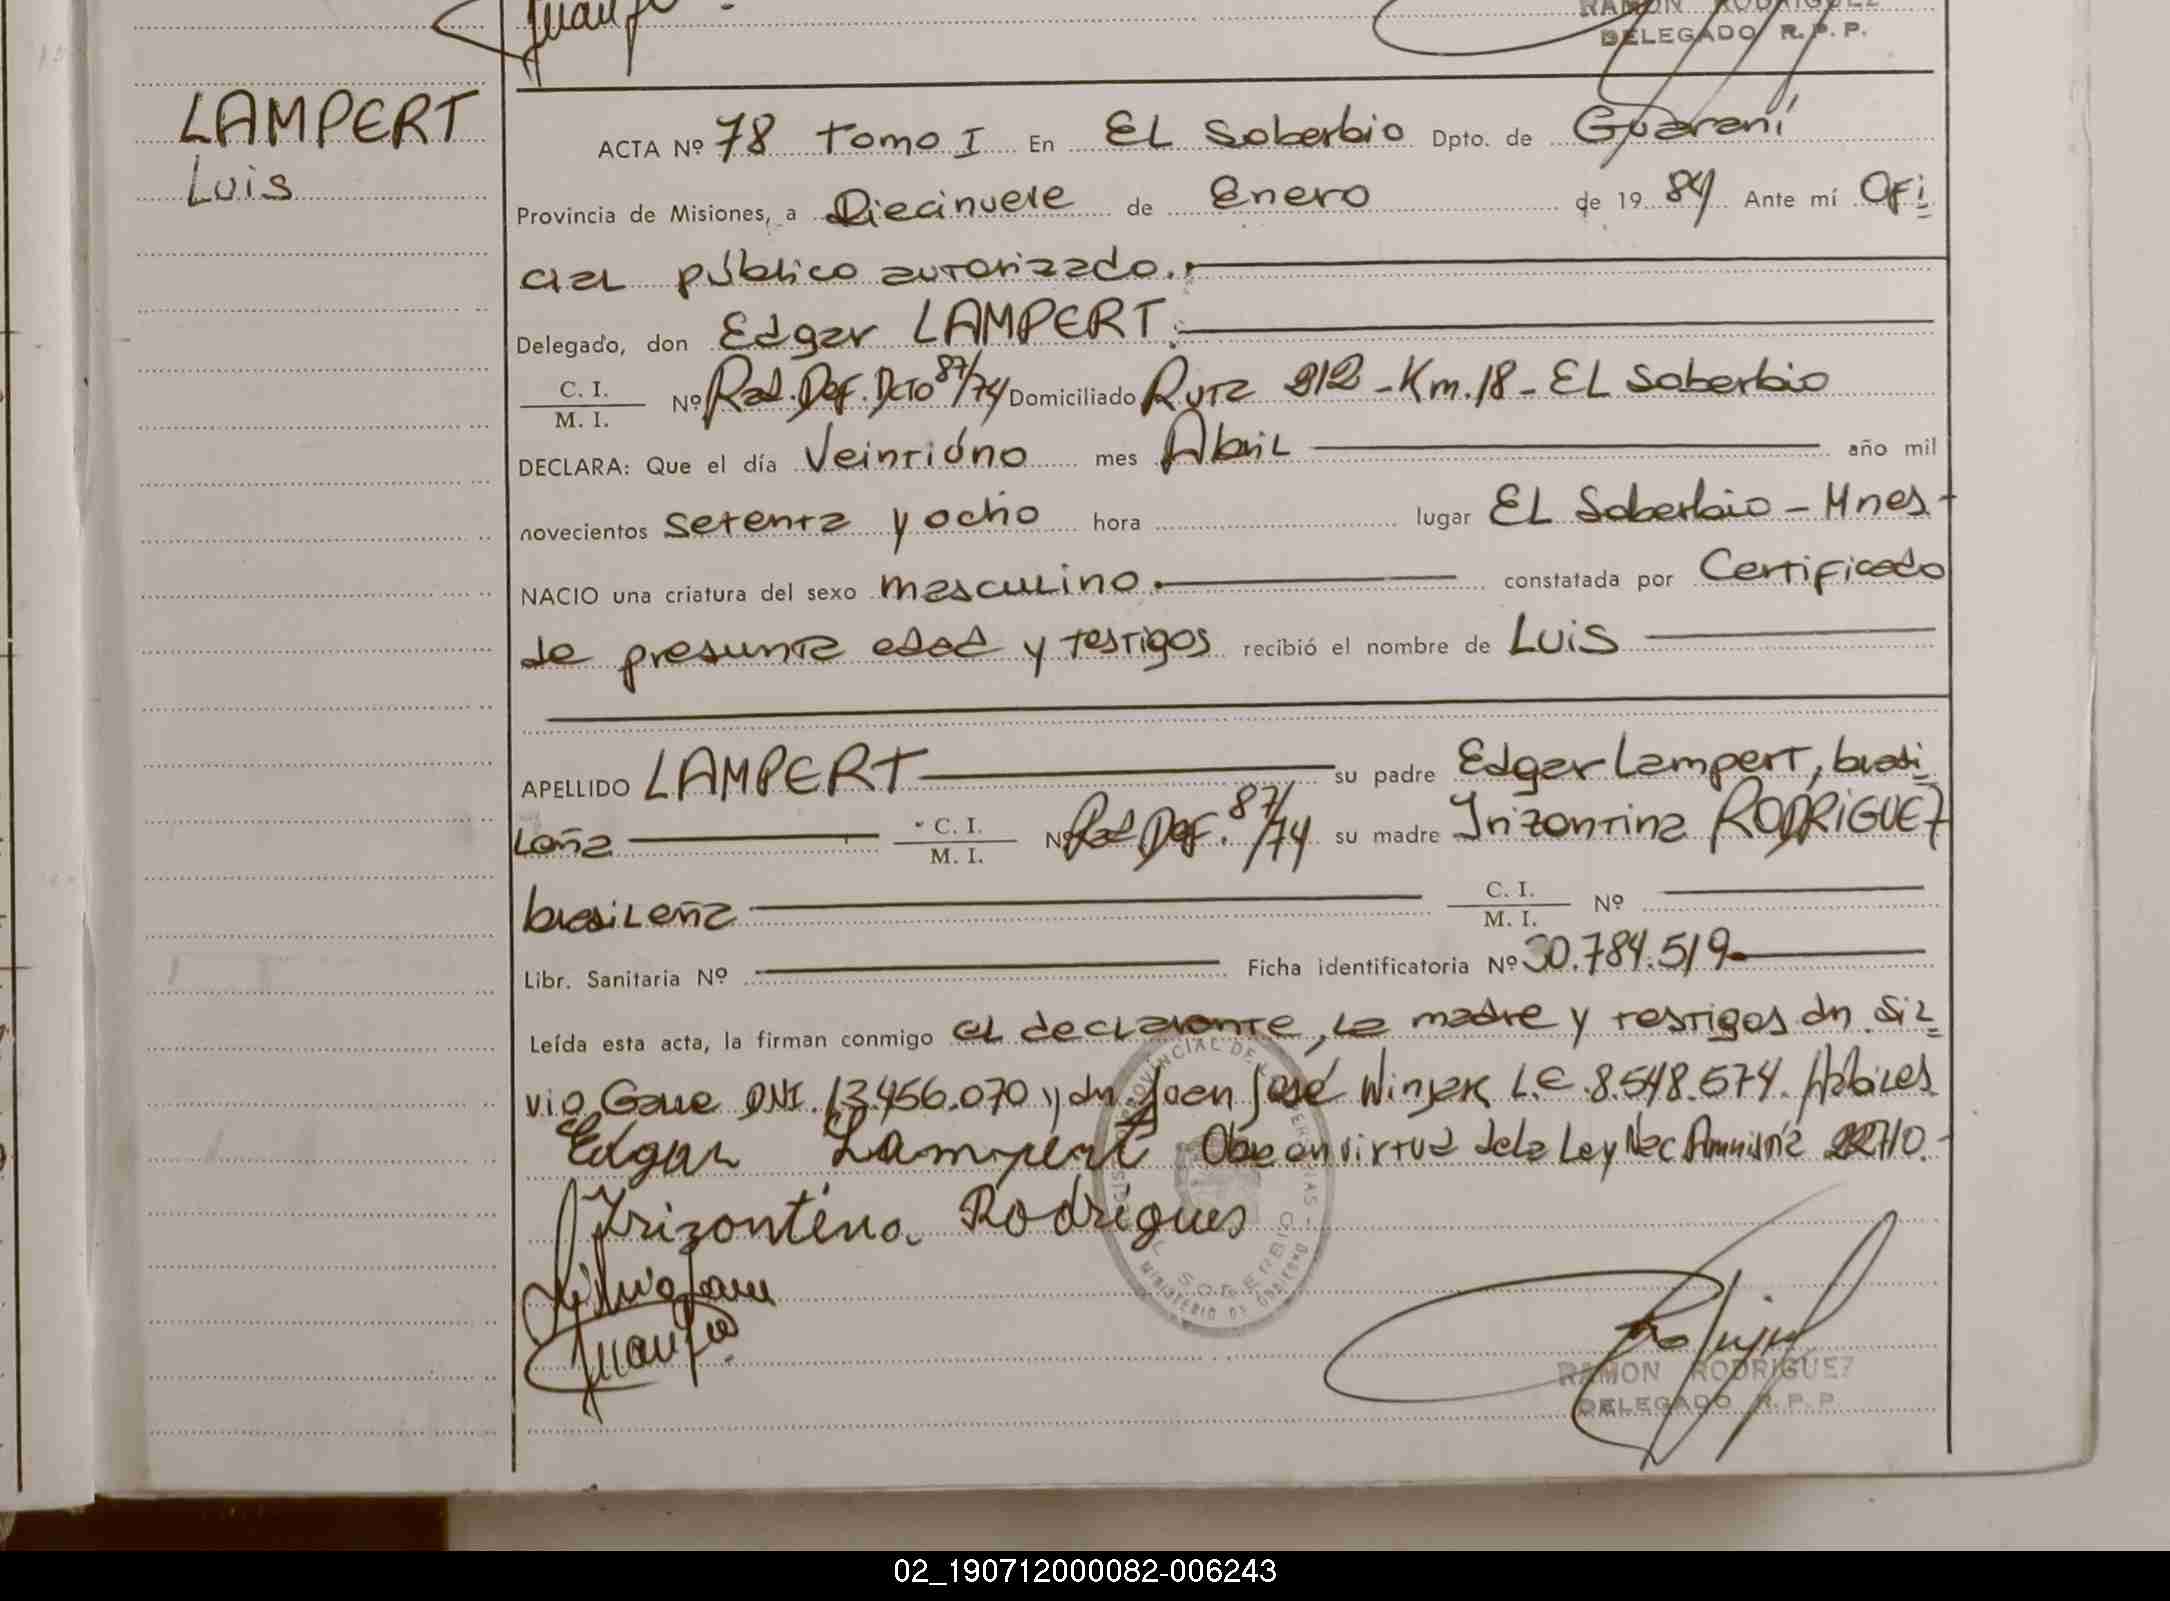 RAMON RODRIGUEZ
DELEGADO R. P. P.
LAMPERT
Luis
ACTA Nº 78 Tomo I En EL Soberbio Dpto. de Guaraní
Provincia de Misiones, a Diecinueve de Enero de 19 84 Ante mí Ofi
cial público autorizado.
Delegado, don Edgar LAMPERT.
C. I.
M. I.
Nº Rad. Def. Dcto 87/74 Domiciliado Ruta 212 - Km. 18 - EL Soberbio
DECLARA: Que el día Veintiúno mes Abril año mil
novecientos setenta y ocho hora lugar EL Soberbio - Mnes -
NACIO una criatura del sexo masculino. constatada por Certificado
de presunta edad y testigos recibió el nombre de Luis
APELLIDO LAMPERT su padre Edgar Lampert, brasi
leña C. I. M. I. Nº Rad Def. 87/74 su madre Irizontina RODRIGUEZ
brasileña C. I. M. I. Nº
Libr. Sanitaria Nº Ficha identificatoria Nº 30.784.519
Leída esta acta, la firman conmigo el declarante, la madre y testigos dn. Sil
vio Gaue DNI. 13.456.070 y dn. Juan José Winjak L.E. 8.548.574. Hábiles
Edgar Lampert Obre en virtud de la Ley Nac Amnistía 22710. -
Irizontina Rodrigues
PROVINCIAL DE
EL SOBERBIO
MINISTERIO DE GOBIERNO
RAMON RODRIGUEZ
DELEGADO R. P. P.
02_190712000082-006243